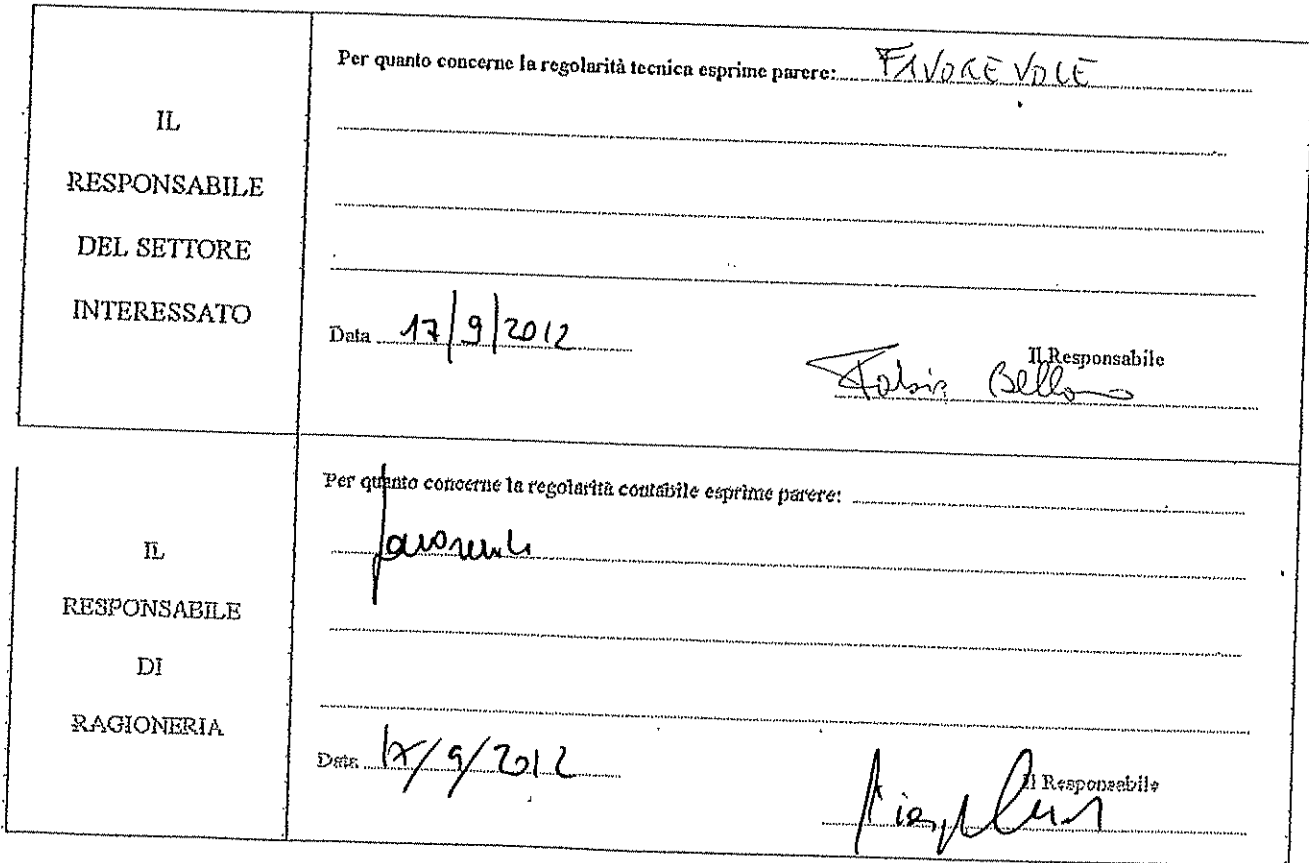 IL
RESPONSABILE
DEL SETTORE
INTERESSATO
Per quanto concerne la regolarità tecnica esprime parere: FAVOREVOLE
Data 17/9/2012
Il Responsabile
Bellono
IL
RESPONSABILE
DI
RAGIONERIA
Per quanto concerne la regolarità contabile esprime parere:
favorevole
Data 17/9/2012
Il Responsabile